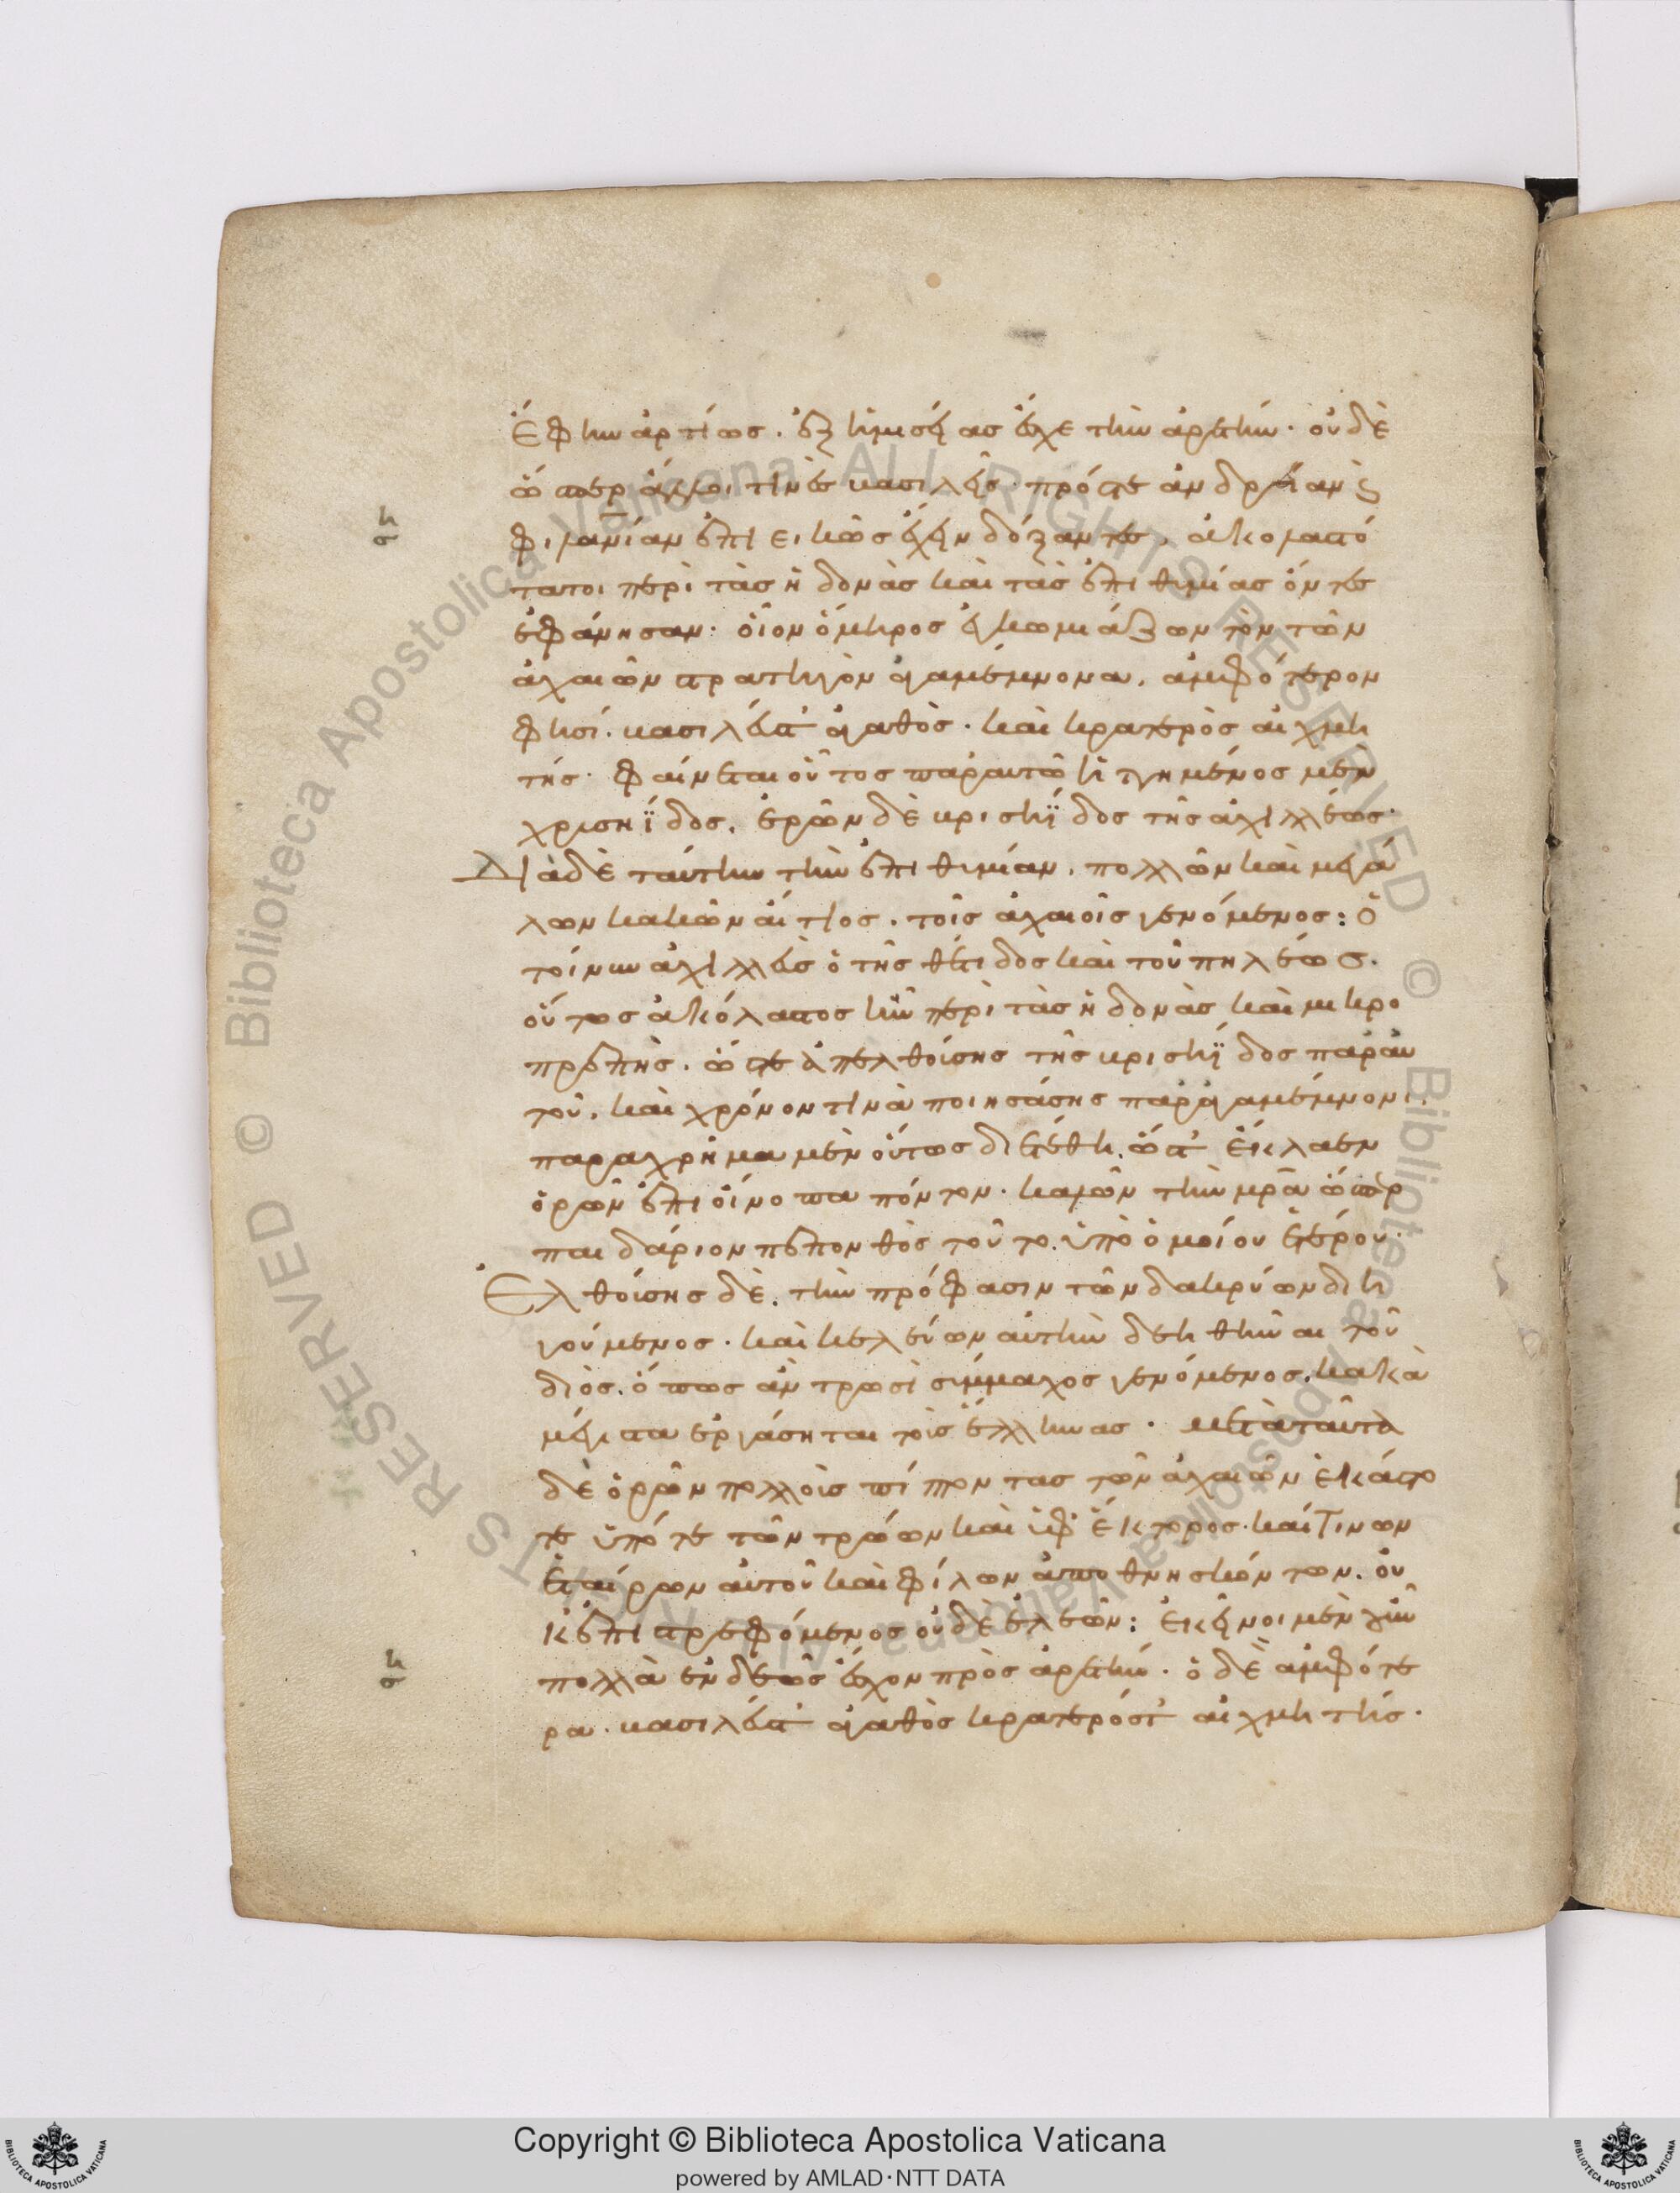 ἔφην ἀρτίως. ἐξ ἡμισείας εἶχε τὴν ἀρετήν. οὐδὲ
ὥσπερ ἄλλοι τινὲς βασιλεῖς. πρός τε ἀνδρείαν καὶ
φιλανίαν ἐπιεικῶς ἔχειν δόξαντες, ἀκολαστό
τατοι περὶ τὰς ἡδονὰς καὶ τὰς ἐπιθυμίας ὄντες
ἐφάνησαν· οἷον ὅμηρος ἐγκωμιάζων τὸν τῶν
ἀχαιῶν στρατηγὸν ἀγαμέμνονα, ἀμφότερον
φησί. βασιλεύς τ' ἀγαθὸς. καὶ κρατερὸς αἰχμη
τής. φαίνεται οὗτος παρ' αυτῶ ἡττημένος μὲν
χρυσηΐδος. ἐρῶν δὲ βρισηΐδος τῆς ἀχιλλέως·
Διὰ δὲ ταύτην τὴν ἐπιθυμίαν. πολλῶν καὶ μεγά
λων κακῶν αἴτιος. τοῖς ἀχαιοῖς γενόμενος: ὁ
τοίνυν ἀχιλλεὺς ὁ τῆς θέτιδος καὶ τοῦ πηλέως.
οὕτως ἀκόλαστος ἦν περὶ τὰς ἡδονὰς καὶ μικρο
πρεπὴς. ὥστε ἀπελθούσης τῆς βρισηΐδος παρ' αυ
τοῦ, καὶ χρόνον τινὰ ποιησάσης παρ' ἀγαμέμνονι.
παραχρῆμα μὲν οὕτως διετέθη. ὥστ' ἔκλαεν
ὁρῶν ἐπὶ οἴνοπα πόντον. καλῶν τὴν μρᾶ ὥσπερ
παιδάριον πεπονθὸς τοῦτο. ὑπὸ ὁμοίου ἑτέρου·
Ἐλθούσης δὲ. τὴν πρόφασιν τῶν δακρύων διη
γούμενος. καὶ κελεύων αὐτὴν δεηθῆναι τοῦ
διὸς. ὅπως ἂν τρωσὶ σύμμαχος γενόμενος. κακὰ
μέγιστα ἐργάσηται τοὺς ἕλληνας. μετὰ ταῦτα
δὲ ὁρῶν πολλοὺς πίπτοντας τῶν ἀχαιῶν ἑκάστο
τε ὑπό τε τῶν τρώων καὶ ὑφ' ἕκτορος. καί τινων
ἑταίρων αὐτοῦ καὶ φίλων ἀποθνησκόντων. οὐ
κ ἐπιστρεφόμενος οὐδὲ ἐλεῶν: ἐκεῖνοι μὲν γοῦν
πολλὰ ἐνδεῶς εἶχον πρὸς ἀρετήν. ὁ δὲ ἀμφότε
ρα. βασιλεύς τ' ἀγαθὸς κρατερός τ' αἰχμητής.